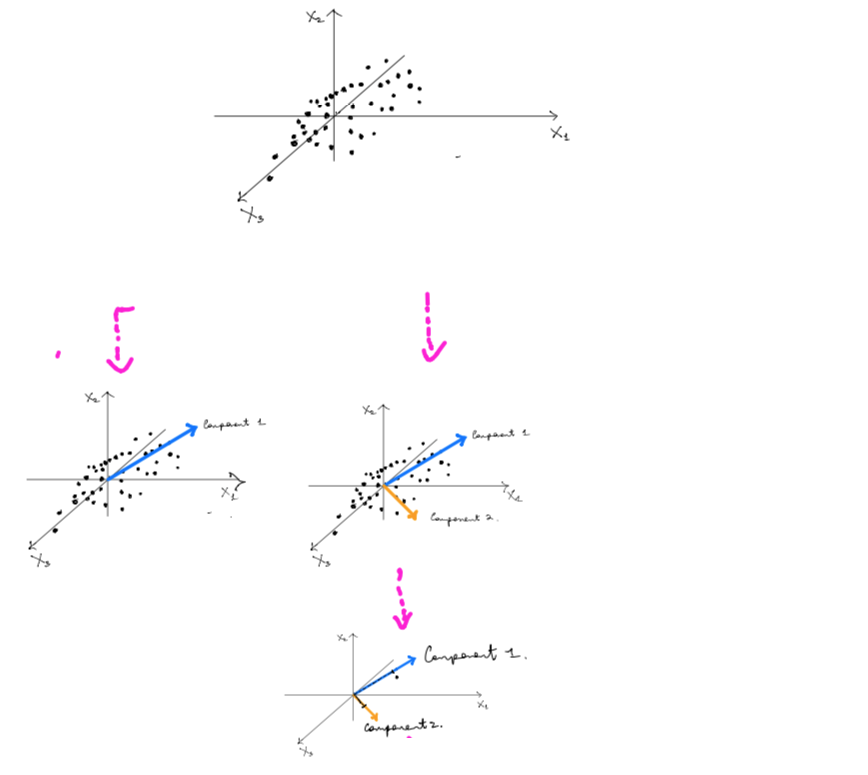 X₂
X₁
X₃
X₂
Component 1
X₁
X₃
X₂
Component 1
X₁
Component 2.
X₃
X₂
Component 1.
X₁
Component 2.
X₃